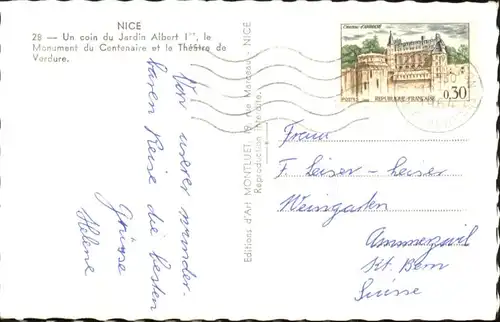 NICE
29 — Un coin du Jardin Albert Iᵉʳ, le
Monument du Centenaire et le Théâtre de
Verdure.
Von unserer wunder-
baren Reise die besten
Grüsse
Helene
Editions d'Art MONTLUET, rue Marceau - NICE
Reproduction Interdite
Château d'AMBOISE
POSTES REPUBLIQUE-FRANÇAISE
0,30
Frau
F. Leiser-Leiser
Weingarten
Ammerzwil
Kt. Bern
Suisse